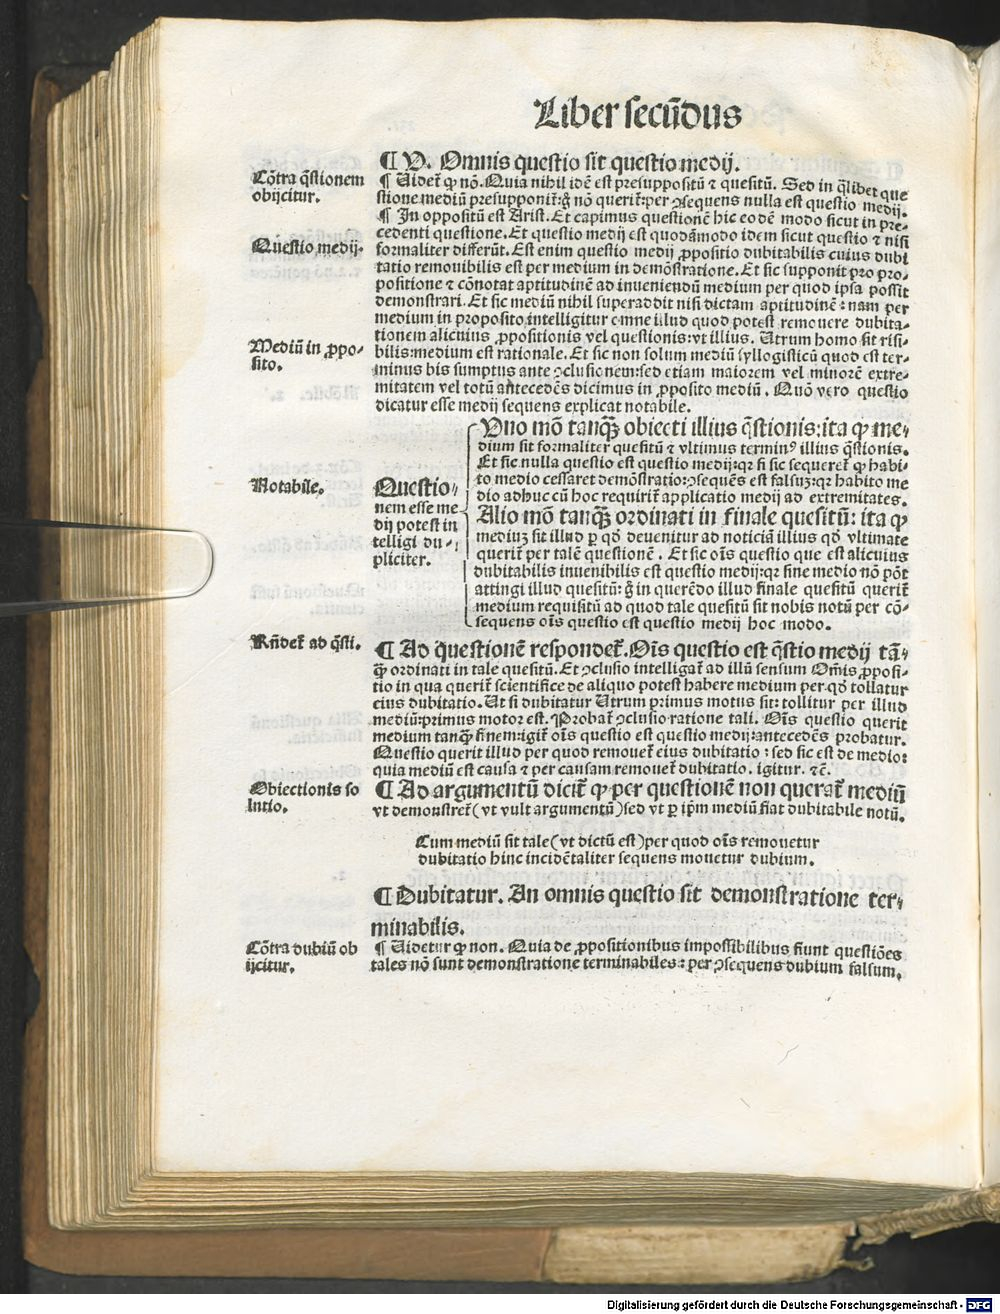 Liber secūdus
¶ V. Omnis questio sit questio medij.
Cōtra q̄stionem
obijcitur.
¶ Uidet᷑ ꝙ nō. Quia nihil idē est presuppositū ⁊ quesitū. Sed in q̄libet que
stione mediū presupponit᷑: g̊ nō querit᷑: per ꝯsequens nulla est questio medij.
¶ In oppositū est Arist. Et capimus questionē hic eodē modo sicut in pre-
cedenti questione. Et questio medij est quodāmodo idem sicut questio ⁊ nisi
Questio medij.
formaliter differūt. Est enim questio medij ꝓpositio dubitabilis cuius dubi
tatio remouibilis est per medium in demōstratione. Et sic supponit pro pro-
positione ⁊ cōnotat aptitudinē ad inueniendū medium per quod ipsa possit
demonstrari. Et sic mediū nihil superaddit nisi dictam aptitudinē: nam per
medium in proposito intelligitur omne illud quod potest remouere dubita-
tionem alicuius ꝓpositionis vel questionis: vt illius. Utrum homo sit risi-
Mediū in ꝓpo-
sito.
bilis: medium est rationale. Et sic non solum mediū syllogisticū quod est ter-
minus bis sumptus ante ꝯclusionem: sed etiam maiorem vel minorē extre-
mitatem vel totū antecedēs dicimus in ꝓposito mediū. Quō vero questio
dicatur esse medij sequens explicat notabile.
Notabile.
Questio-
nem esse me
dij potest in
telligi du-
pliciter.
Uno mō tanq̄ꝫ obiecti illius q̄stionis: ita ꝙ me-
dium sit formaliter quesitū ⁊ vltimus terminꝰ illius q̄stionis.
Et sic nulla questio est questio medij: qꝛ si sic sequeret᷑ ꝙ habi-
to medio cessaret demōstratio: ꝯsequēs est falsuꝫ: qꝛ habito me
dio adhuc cū hoc requirit᷑ applicatio medij ad extremitates.
Alio mō tanq̄ꝫ ordinati in finale quesitū: ita ꝙ
mediuꝫ sit illud ꝑ qd̄ deuenitur ad noticiā illius qd̄ vltimate
querit᷑ per talē questionē. Et sic oīs questio que est alicuius
dubitabilis inuenibilis est questio medij: qꝛ sine medio nō pōt
attingi illud quesitū: g̊ in querēdo illud finale quesitū querit᷑
medium requisitū ad quod tale quesitū sit nobis notū per cō-
sequens oīs questio est questio medij hoc modo.
Rn̄det᷑ ad q̄sti.
¶ Ad questionē respondet᷑. Oīs questio est q̄stio medij tā-
q̄ꝫ ordinati in tale quesitū. Et ꝯclusio intelligat᷑ ad illū sensum Om̄is ꝓposi-
tio in qua querit᷑ scientifice de aliquo potest habere medium per qd̄ tollatur
eius dubitatio. Ut si dubitatur Utrum primus motus sit: tollitur per illud
mediū: primus motor est. Probat᷑ ꝯclusio ratione tali. Oīs questio querit
medium tanq̄ꝫ finem: igit᷑ oīs questio est questio medij: antecedēs probatur.
Questio querit illud per quod remouet᷑ eius dubitatio: sed sic est de medio:
quia mediū est causa ⁊ per causam remouet᷑ dubitatio. igitur. ⁊c̄.
Obiectionis so
lutio.
¶ Ad argumentū dicit᷑ ꝙ per questionē non querat᷑ mediū
vt demonstret᷑ (vt vult argumentū) sed vt ꝑ ip̄m mediū fiat dubitabile notū.
Cum mediū sit tale (vt dictū est) per quod oīs remouetur
dubitatio hinc incidētaliter sequens mouetur dubium.
¶ Dubitatur. An omnis questio sit demonstratione ter-
minabilis.
Cōtra dubiū ob
ijcitur.
¶ Uidetur ꝙ non. Quia de ꝓpositionibus impossibilibus fiunt questiōes
tales nō sunt demonstratione terminabiles: per ꝯsequens dubium falsum.
Digitalisierung gefördert durch die Deutsche Forschungsgemeinschaft - DFG